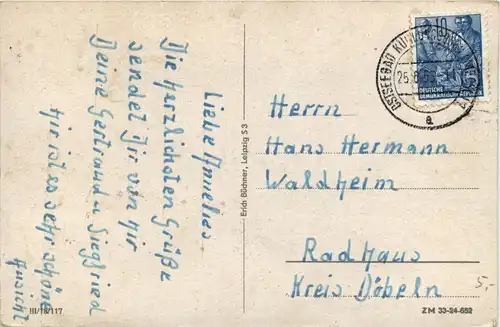 Liebe Annelies.
Die herzlichsten Grüße
sendet Dir von hir
Deine Gertraud u. Siegfried
Hir ist es sehr schöne
Aussicht
III/18/117
Erich Büchner, Leipzig S 3
10
DEUTSCHE
DEMOKRATISCHE REPUBLIK
OSTSEEBAD
25.8.
a
Herrn
Hans Hermann
Waldheim
Radhaus
Kreis Döbeln
5,-
ZM 33-24-652